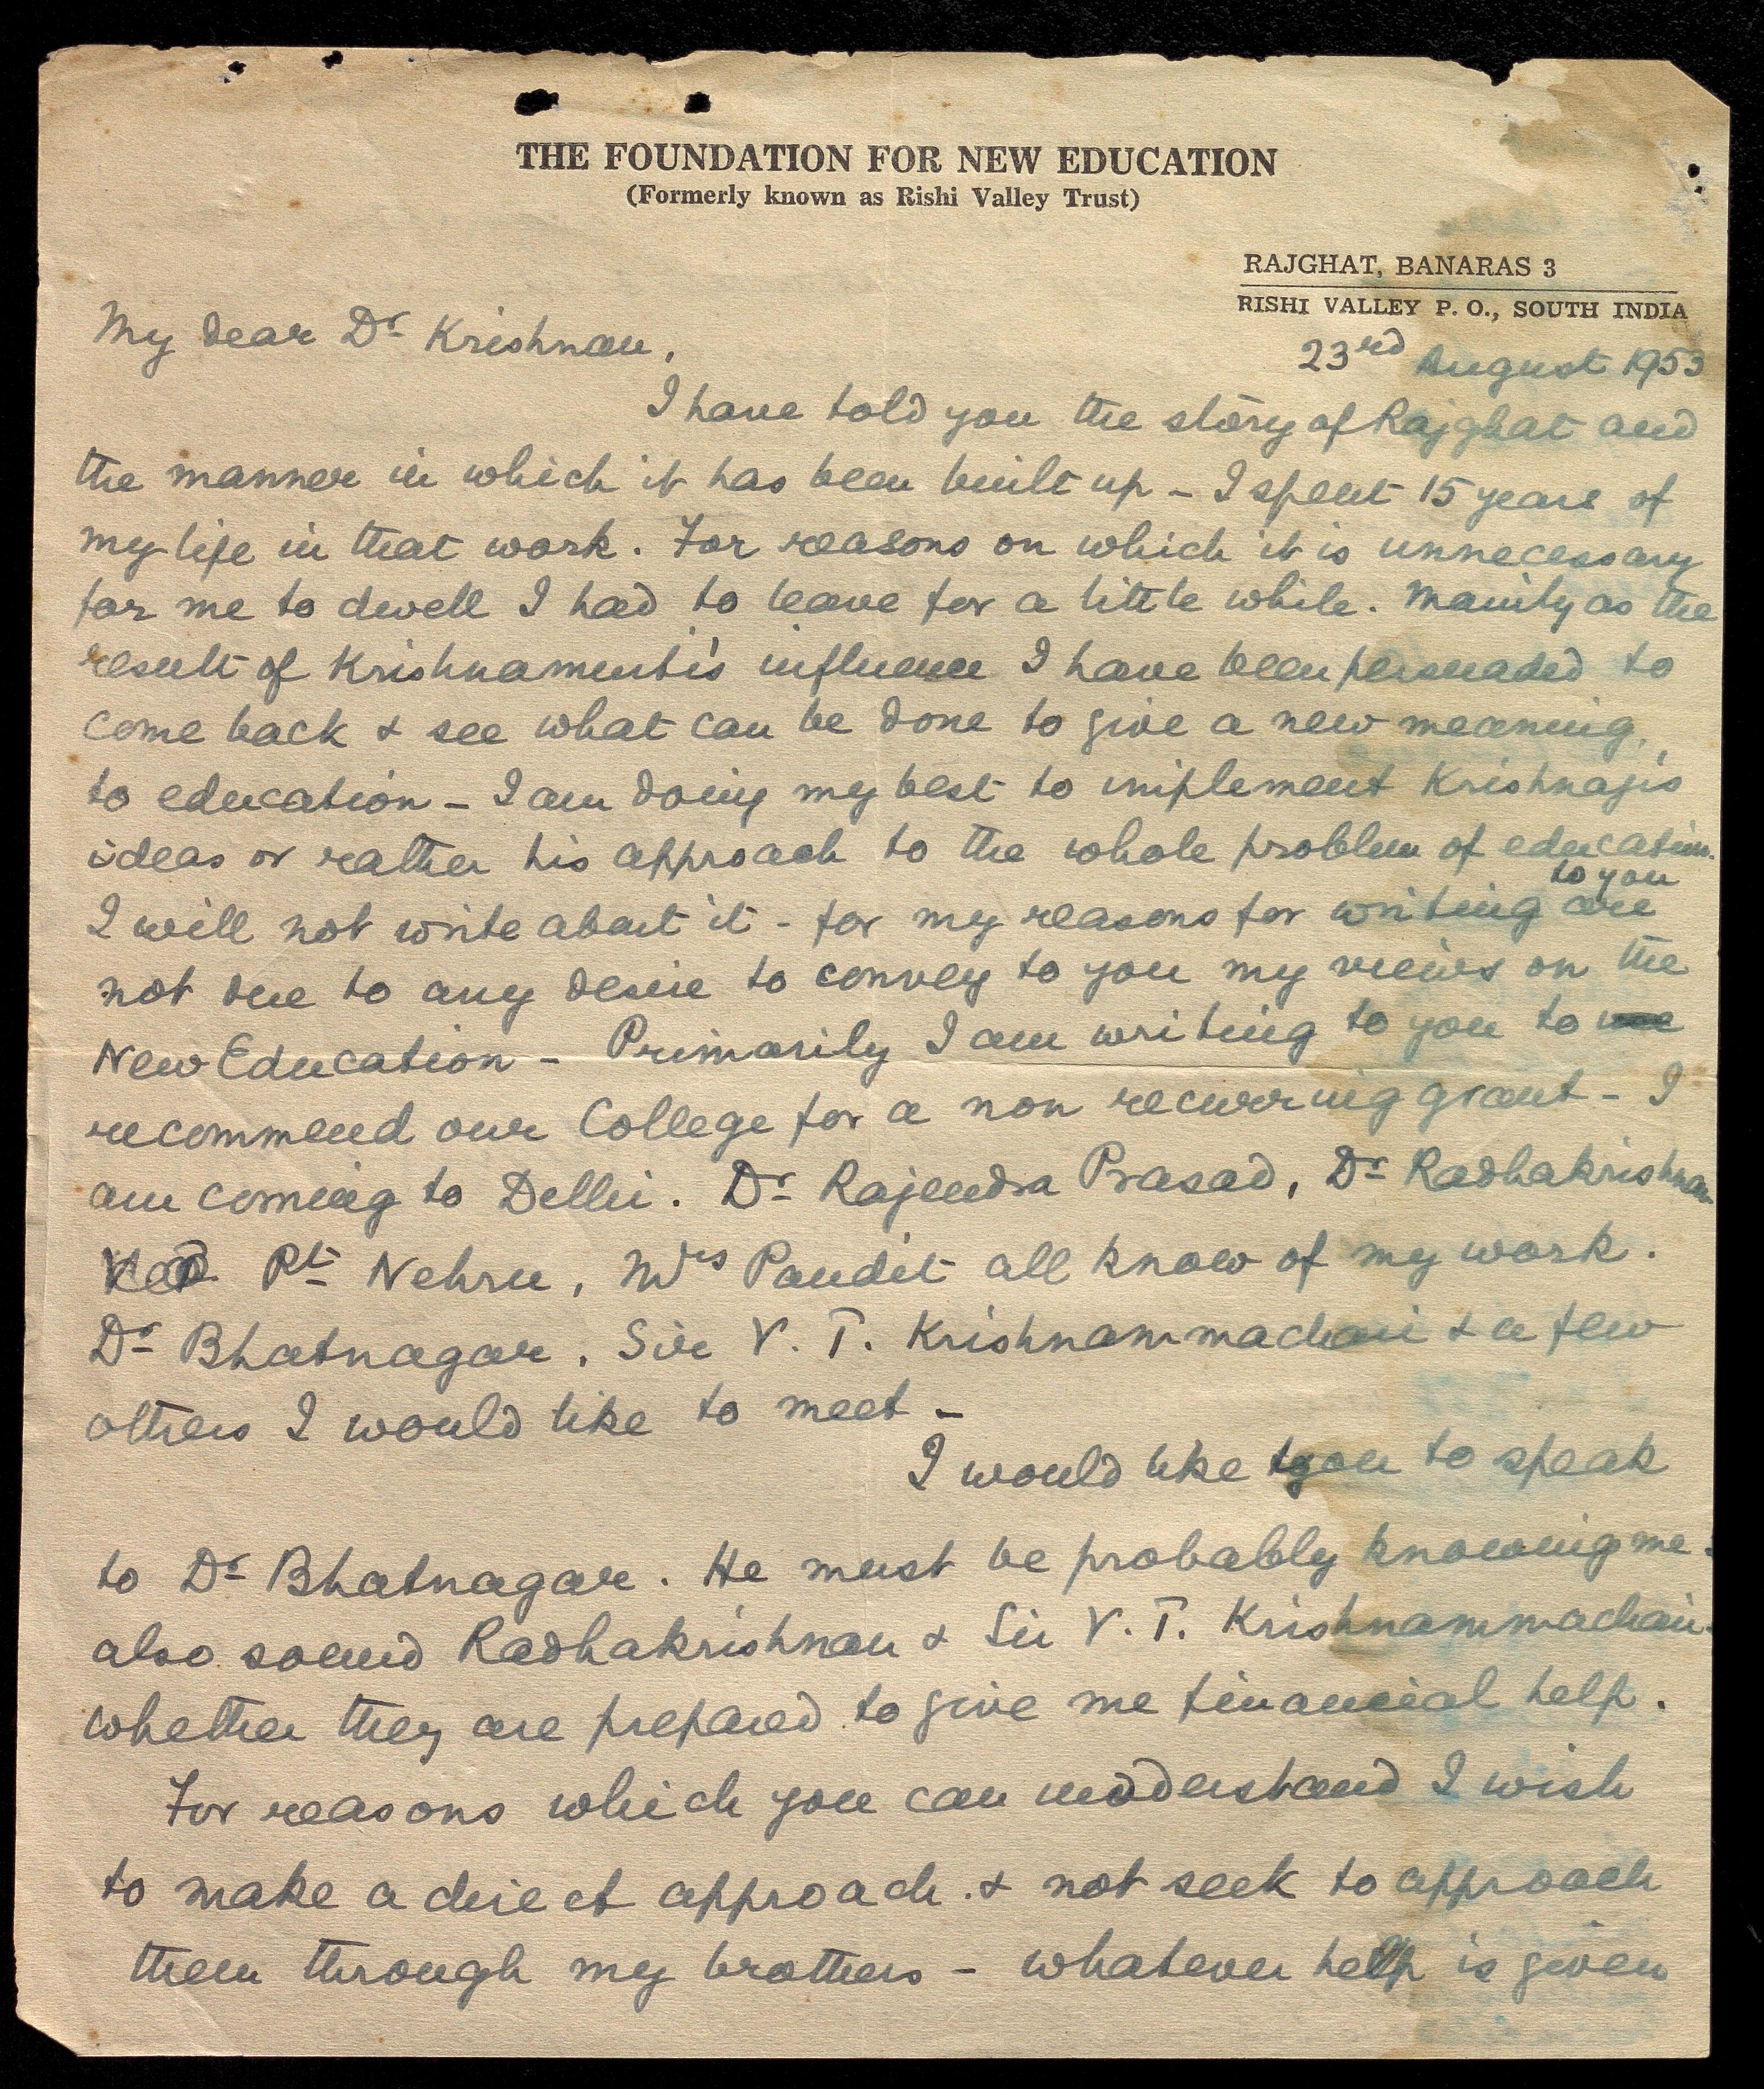 THE FOUNDATION FOR NEW EDUCATION
(Formerly known as Rishi Valley Trust)
RAJGHAT, BANARAS 3
RISHI VALLEY P. O., SOUTH INDIA
23rd August 1953
My dear Dr Krishnan,
I have told you the story of Rajghat and
the manner in which it has been built up - I spent 15 years of
my life in that work. For reasons on which it is unnecessary
for me to dwell I had to leave for a little while. Mainly as the
result of Krishnamurti's influence I have been persuaded to
come back & see what can be done to give a new meaning
to education - I am doing my best to implement Krishnaji's
ideas or rather his approach to the whole problem of education.
to you
I will not write about it - for my reasons for writing are
not due to any desire to convey to you my views on the
New Education - Primarily I am writing to you to
recommend our College for a non recurring grant - I
am coming to Delhi. Dr Rajendra Prasad, Dr Radhakrishnan
Pt Nehru, Mrs Pandit all know of my work.
Dr Bhatnagar, Sir V. T. Krishnammachari & a few
others I would like to meet -
I would like you to speak
to Dr Bhatnagar. He must be probably knowing me.
also sound Radhakrishnan & Sir V. T. Krishnammachari
whether they are prepared to give me financial help.
For reasons which you can understand I wish
to make a direct approach & not seek to approach
them through my brothers - whatever help is given